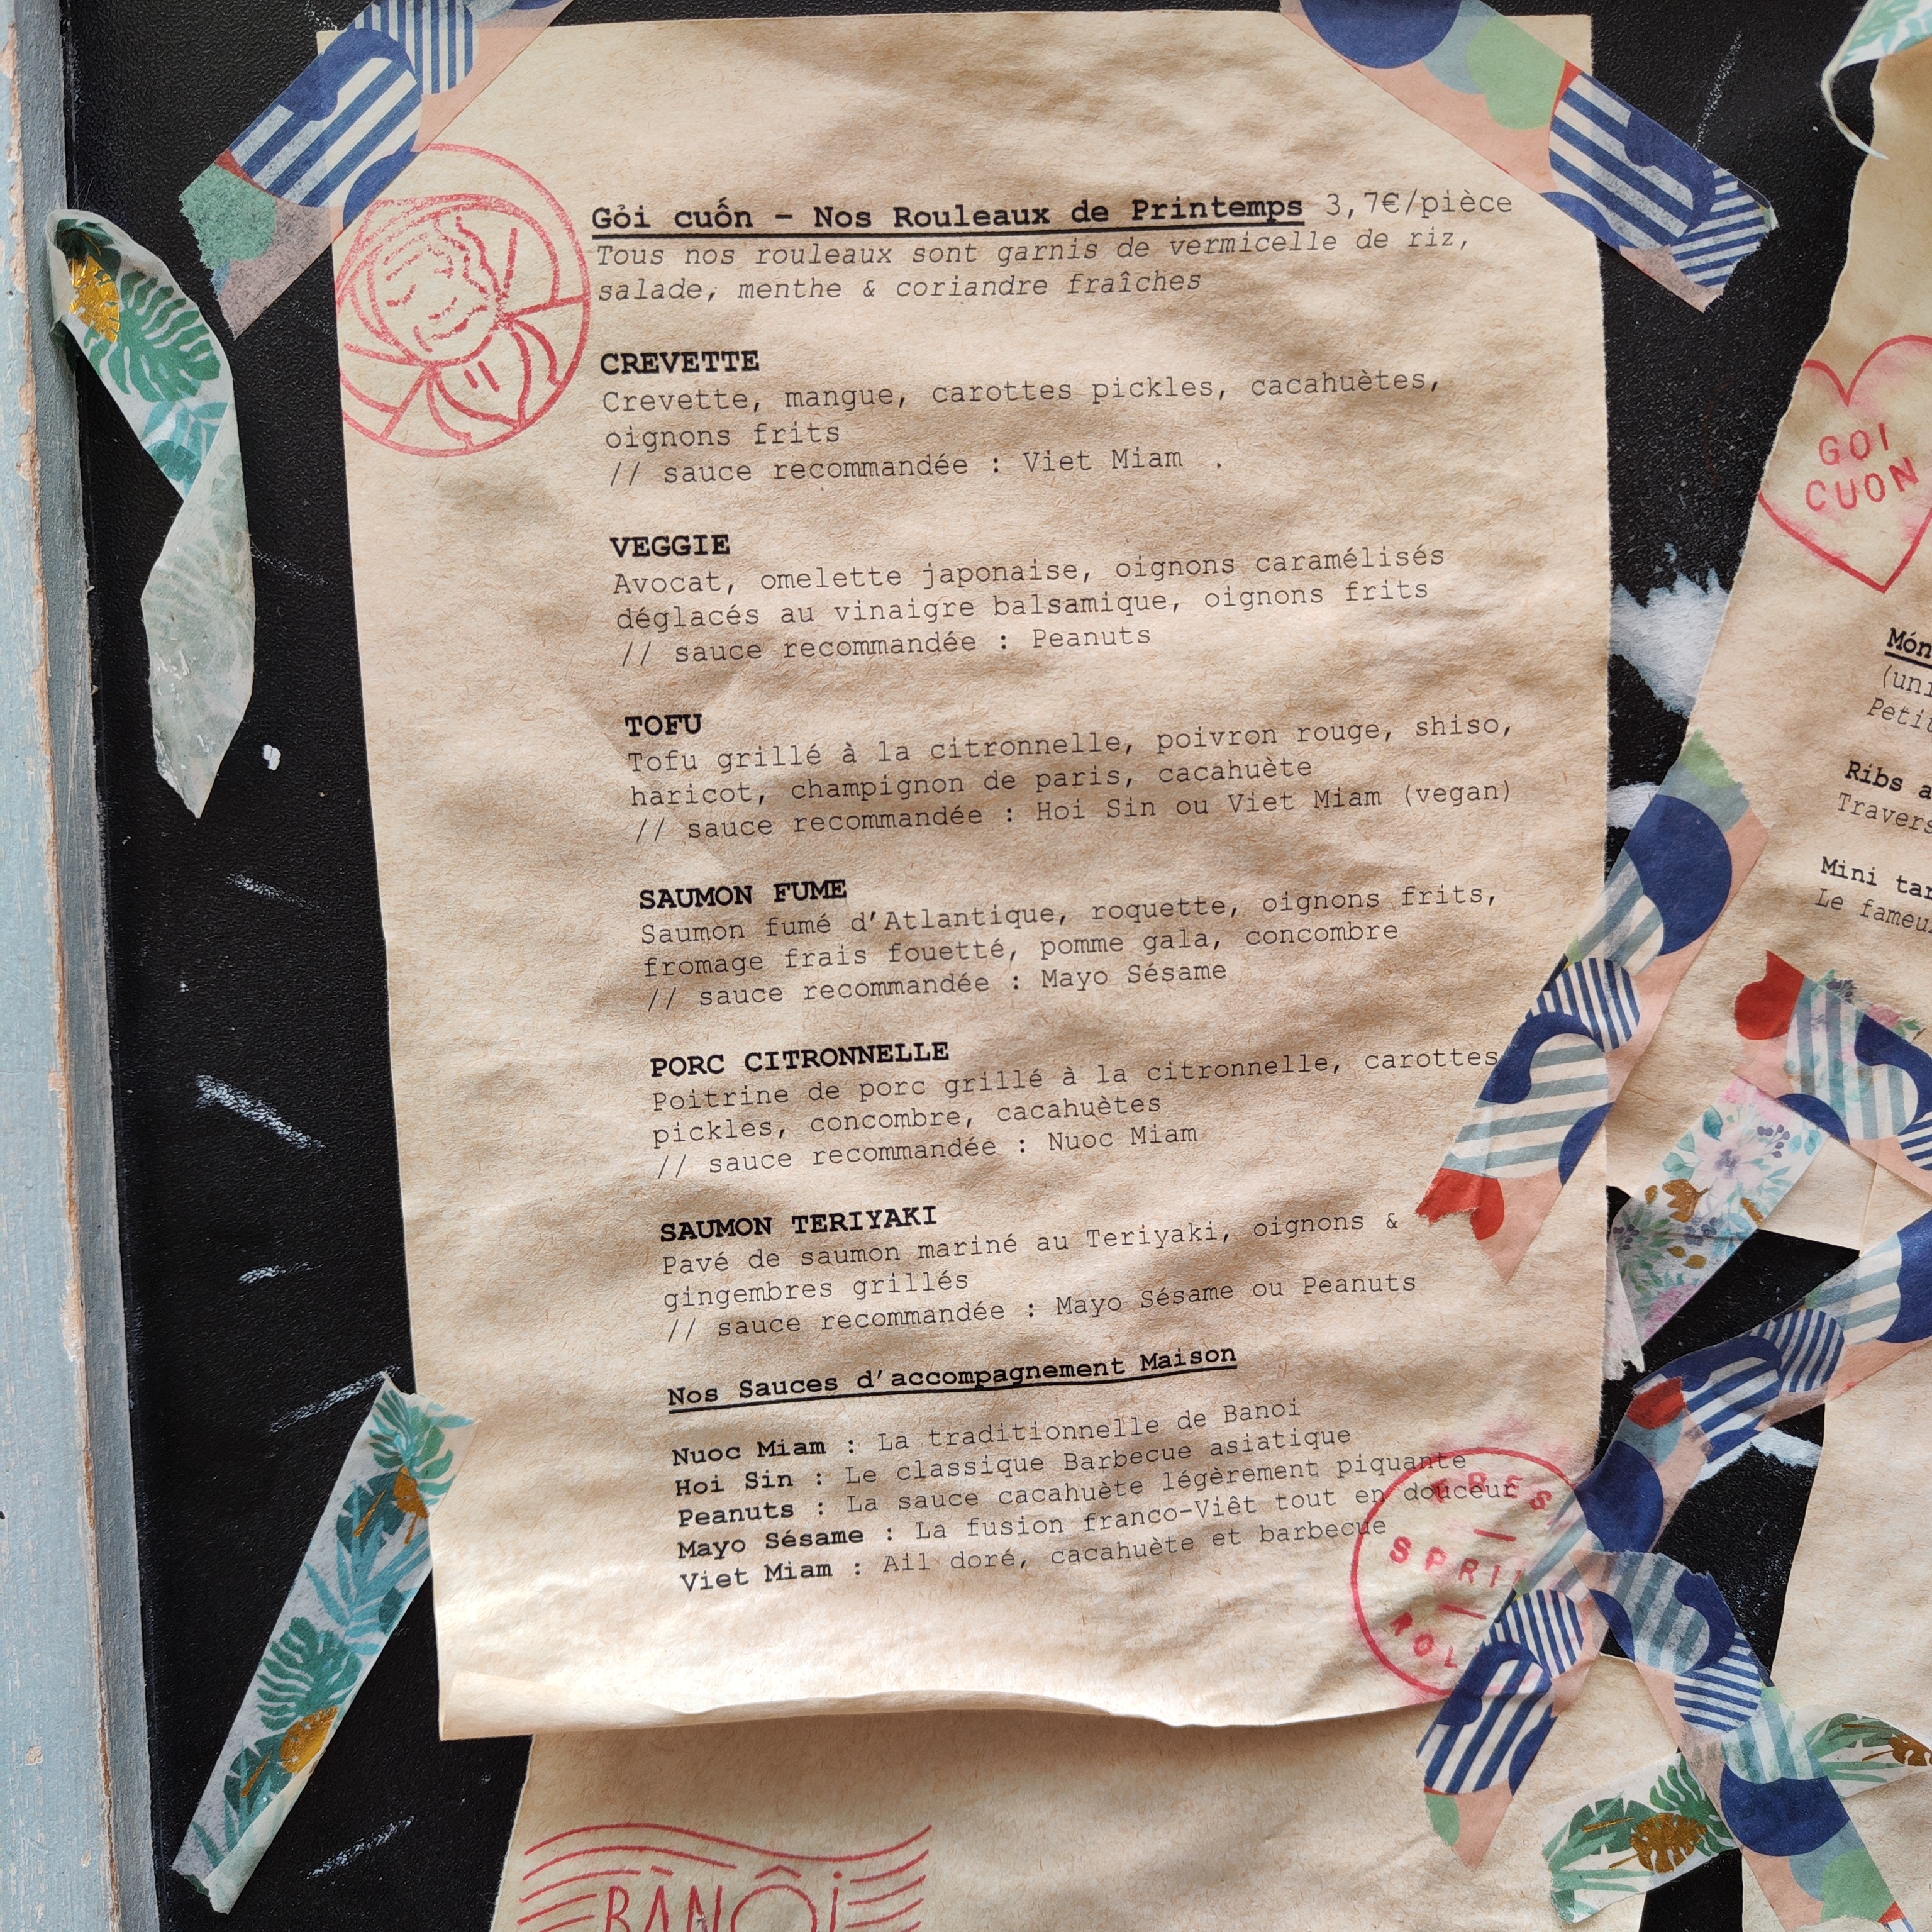 Gỏi cuốn - Nos Rouleaux de Printemps 3,7€/pièce
Tous nos rouleaux sont garnis de vermicelle de riz,
salade, menthe & coriandre fraîches
CREVETTE
Crevette, mangue, carottes pickles, cacahuètes,
oignons frits
// sauce recommandée : Viet Miam .
VEGGIE
Avocat, omelette japonaise, oignons caramélisés
déglacés au vinaigre balsamique, oignons frits
// sauce recommandée : Peanuts
TOFU
Tofu grillé à la citronnelle, poivron rouge, shiso,
haricot, champignon de paris, cacahuète
// sauce recommandée : Hoi Sin ou Viet Miam (vegan)
SAUMON FUME
Saumon fumé d'Atlantique, roquette, oignons frits,
fromage frais fouetté, pomme gala, concombre
// sauce recommandée : Mayo Sésame
PORC CITRONNELLE
Poitrine de porc grillé à la citronnelle, carottes
pickles, concombre, cacahuètes
// sauce recommandée : Nuoc Miam
SAUMON TERIYAKI
Pavé de saumon mariné au Teriyaki, oignons &
gingembres grillés
// sauce recommandée : Mayo Sésame ou Peanuts
Nos Sauces d'accompagnement Maison
Nuoc Miam : La traditionnelle de Banoi
Hoi Sin : Le classique Barbecue asiatique
Peanuts : La sauce cacahuète légèrement piquante
Mayo Sésame : La fusion franco-Viêt tout en douceur
Viet Miam : Ail doré, cacahuète et barbecue
BÀNÔI
GOI
CUON
Ribs
Mini
Le